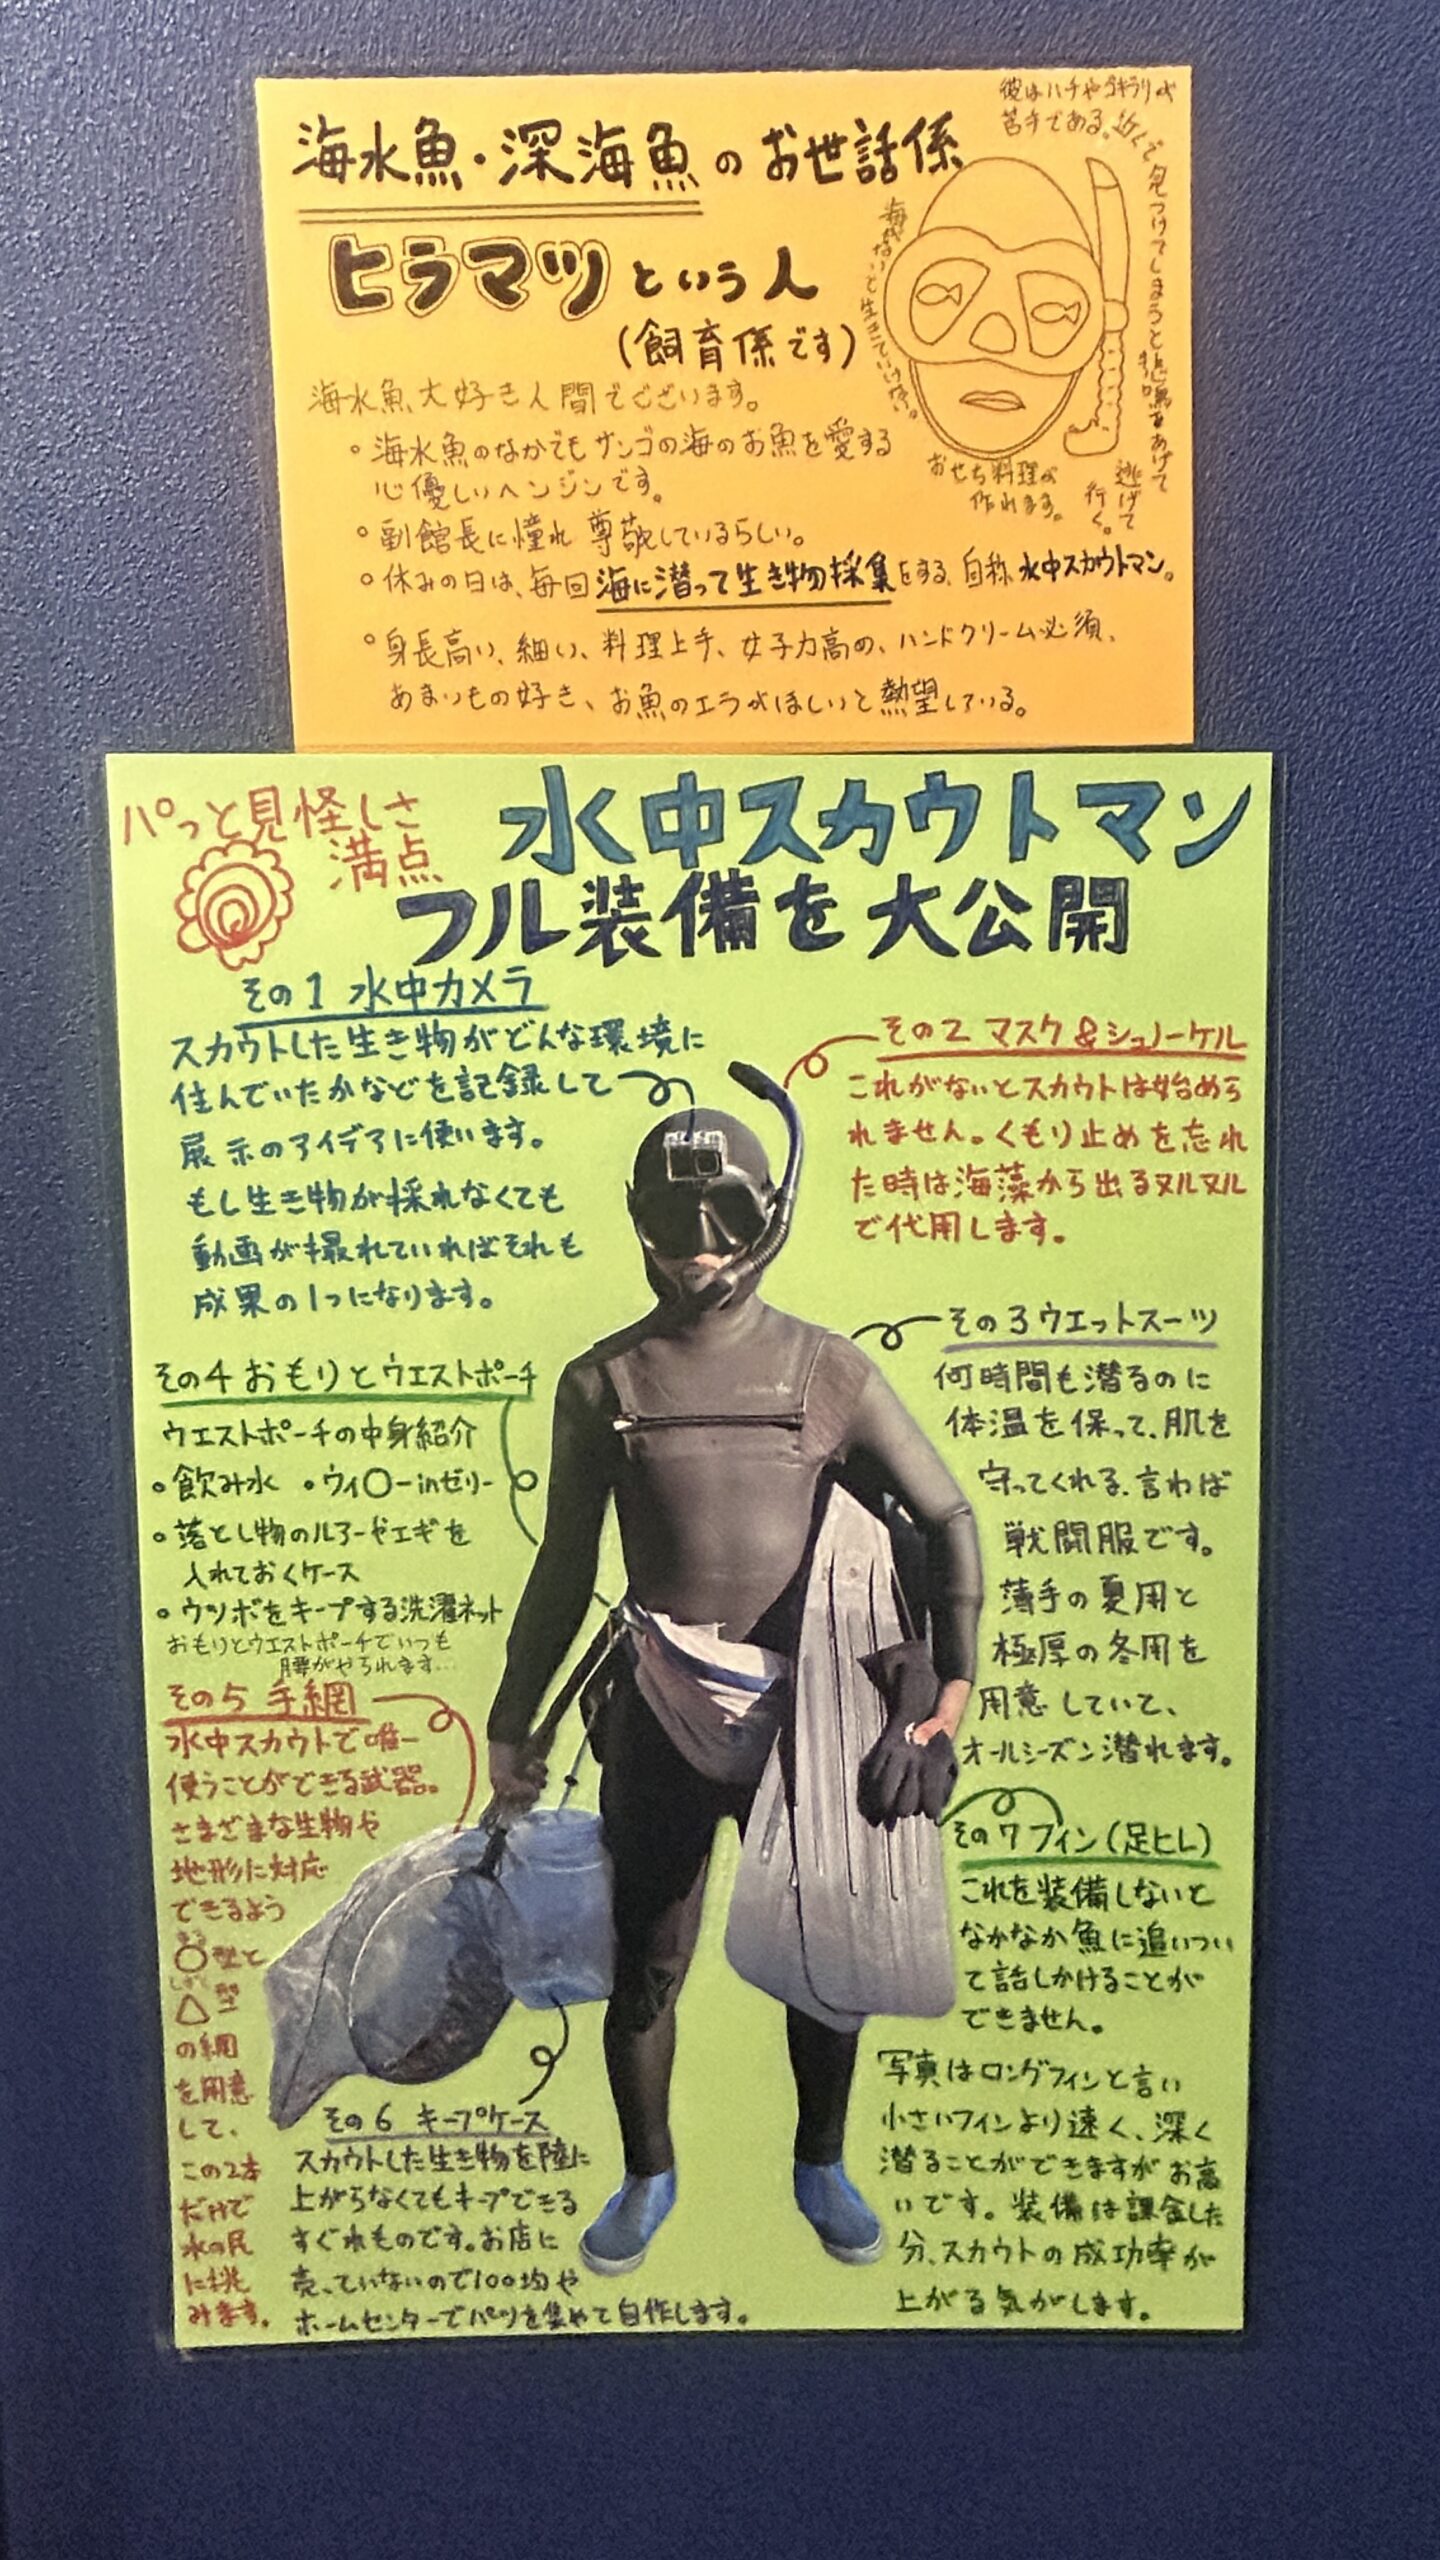 海水魚・深海魚のお世話係
ヒラマツという人
(飼育係です)
彼はハチやゴキブリが
苦手である。近くで見つけてしまうと悲鳴をあげて
逃げて
行く。
海がないと生きていけない。
おせち料理が
作れます。
海水魚大好き人間でございます。
・海水魚のなかでもサンゴの海のお魚を愛する
心優しいヘンジンです。
・副館長に憧れ 尊敬しているらしい。
・休みの日は、毎回海に潜って生き物採集をする、自称 水中スカウトマン。
・身長高い、細い、料理上手、女子力高め、ハンドクリーム必須、
あまいもの好き、お魚のエラがほしいと熱望している。
パっと見怪しさ
満点
水中スカウトマン
フル装備を大公開
その1 水中カメラ
スカウトした生き物がどんな環境に
住んでいたかなどを記録して
展示のアイデアに使います。
もし生き物が採れなくても
動画が撮れていればそれも
成果の1つになります。
その2 マスク&シュノーケル
これがないとスカウトは始めら
れません。くもり止めを忘れ
た時は海藻から出るヌルヌル
で代用します。
その3 ウエットスーツ
何時間も潜るのに
体温を保って、肌を
守ってくれる、言わば
戦闘服です。
薄手の夏用と
極厚の冬用を
用意していて、
オールシーズン潜れます。
その4 おもりとウエストポーチ
ウエストポーチの中身紹介
・飲み水 ・ウィ〇ーinゼリー
・落とし物のルアーやエギを
入れておくケース
・ウツボをキープする洗濯ネット
おもりとウエストポーチでいつも
腰がやられます…
その5 手網
水中スカウトで唯一
使うことができる武器。
さまざまな生物や
地形に対応
できるよう
〇型と
△型
の網
を用意
して、
この2本
だけで
水の民
に挑
みます。
その6 キープケース
スカウトした生き物を陸に
上がらなくてもキープできる
すぐれものです。お店に
売っていないので100均や
ホームセンターでパーツを集めて自作します。
その7 フィン(足ヒレ)
これを装備しないと
なかなか魚に追いつい
て話しかけることが
できません。
写真はロングフィンと言い
小さいフィンより速く、深く
潜ることができますがお高
いです。装備は課金した
分、スカウトの成功率が
上がる気がします。